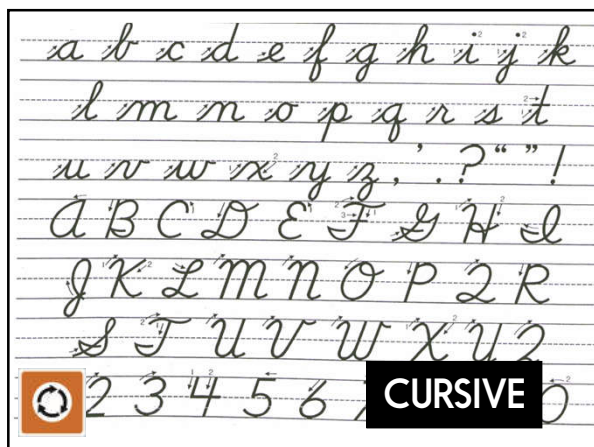 a b c d e f g h i j k
l m n o p q r s t
u v w x y z , ' . ? “ ” !
A B C D E F G H I
J K L M N O P Q R
S T U V W X Y Z
2 3 4 5 6
CURSIVE